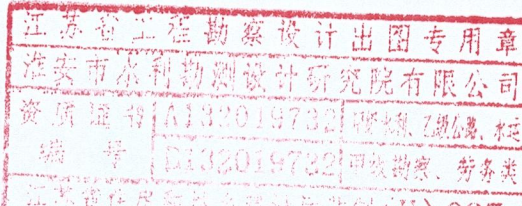 江苏省工程勘察设计出图专用章
淮安市水利勘测设计研究院有限公司
资质证书 A132019732 甲级水利、乙级公路、水运
编号 D132019732 甲级勘察、劳务类